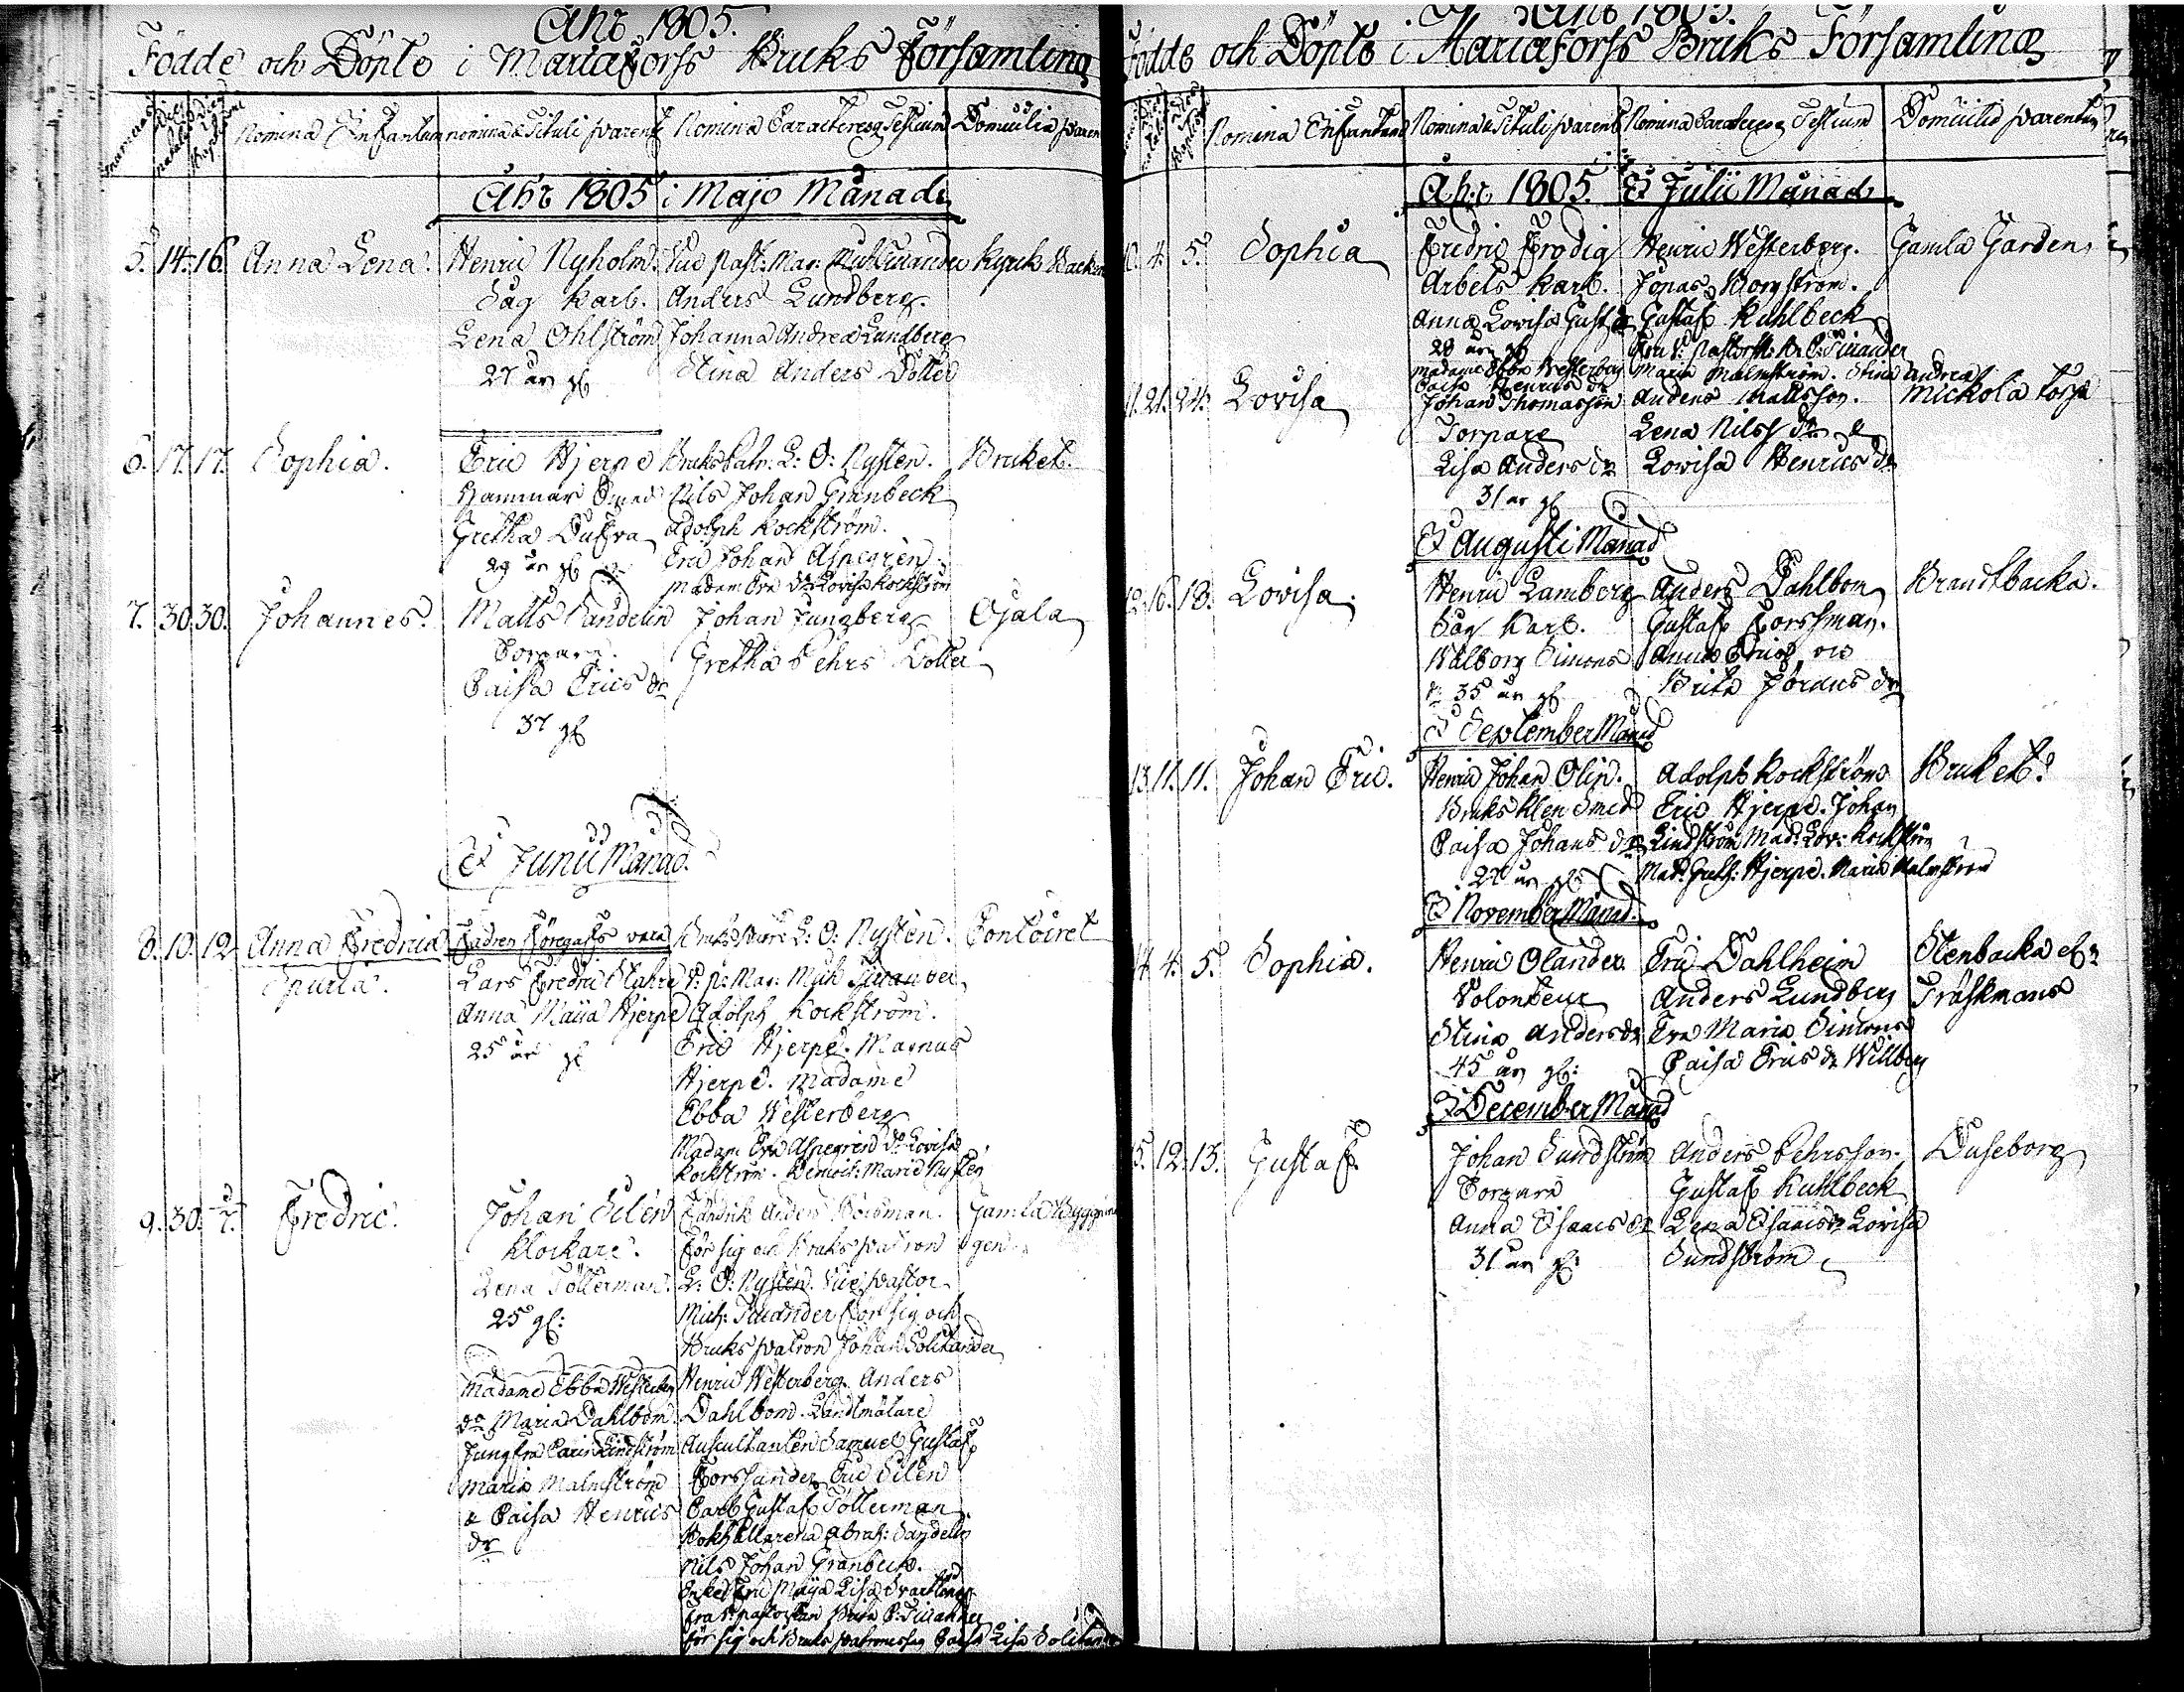 Åhr 1805.
Födde och Döpte i Mariæforss Bruks Församling
Nomina Infantum
Nomina & Tituli Parent
Nomina Caracteresq Testium
Domicilia Paren
Åhr 1805 i Majo Månad
5. 14. 16. Anna Lena. Henric Nyholm.
Såg Karl. Anders Lundberg.
Lena Ohlström Johanna Andrea Lundberg
27 år gl Stina Anders Dotter
6. 17. 17. Sophia. Eric Hjerpe Bruks Patr: L: O: Nysten. Bruket.
Hammar Smed Nils Johan Granbeck
Gretha Dufva Adolph Kockström.
29 år gl Eric Johan Aspegrén.
Madam Eva Do Lovisa Kockström
7. 30. 30. Johannes. Matts Sandelin Johan Jungberg Ojala
Torpare. Gretha Pehrs Dotter
Caisa Erics dr
37 gl
I Junii Månad.
8. 10. 12. Anna Fredrica Fadren föregafs vara L: O: Nysten. Contoiret
Spuria. Lars Fredric Stahre
Anna Maija Hjerpe Adolph Kockström.
25 år gl Eric Hjerpe. Magnus
Hjerpe. Madame
Ebba Westerberg
Madam Eva Aspegrén Do Lovisa
Kockström. Demois: Maria Nysten
9. 30. Fredric. Johan Silén Fändrik Anders Gamla Byggnin
Klockare. för sig och Bruks Patron gen.
Lena Töllerman. L: O: Nysten. Vice Pastor
25 gl: Mich: för sig och
Bruks Patron Johan Solitander
Madame Ebba Westerberg Henric Westerberg. Anders
do Maria Dahlbom. Dahlbom. Landtmätare
Jungfru Carin Lindström Auscultanten Samuel Gustaf
Maria Malmström Forssander Eric Silén
& Caisa Henrics Carl Gustaf Töllerman
dr Bokhållarena Abrah: Sandelin
Nils Johan Granbeck.
Maija Lisa
för sig och Bruks Lisa
Åhr 1805.
Födde och Döpte i Mariæforss Bruks Församling
Nomina Infantum
Nomina & Tituli Parent
Nomina Caracteresq Testium
Domicilia Parentum
Åhr 1805. I Julii Månad
10. 4. 5. Sophia Fredric Frodig Henric Westerberg. Gamla Gården
Arbets Karl. Jonas Borgström.
Anna Lovisa Gustaf Kuhlbeck
28 år gl
Madame Ebba Westerberg Maria Malmström. Stina Andrea
Caisa Henrics dr
11. 21. 24. Lovisa Johan Thomasson Anders Mattsson. Mickola Torp
Torpare Lena Nilss dr &
Lisa Anders dr Lovisa Henrics dr
31 år gl
I Augusti Månad
12. 16. 18. Lovisa. Henric Lamberg Anders Dahlbom Brandtbacka.
Såg Karl. Gustaf Forssman.
Walborg Simons Anna
dr 35 år gl Brita Jörans dr
I September Månad
13. 11. 11. Johan Eric. Henric Johan Olin. Adolph Kockström Bruket.
Bruks Klen Smed Eric Hjerpe. Johan
Caisa Johans dr Lindström Mad: Lov: Kockström
27 år gl Mad: Greth: Hjerpe. Maria Malmström
I November Månad.
14. 4. 5. Sophia. Henric Olander. Eric Dahlheim Stenbacka elr
Volonteur Anders Lundberg Träskmans
Stina Anders dr Eva Maria Simons
45 år gl: Caisa Erics dr Willberg
I December Månad
15. 12. 13. Gustaf. Johan Sundström Anders Pehrsson. Duseborg
Torpare Gustaf Kuhlbeck
Anna Isaacs dr Lena Isaacs dr Lovisa
31 år gl: Sundström